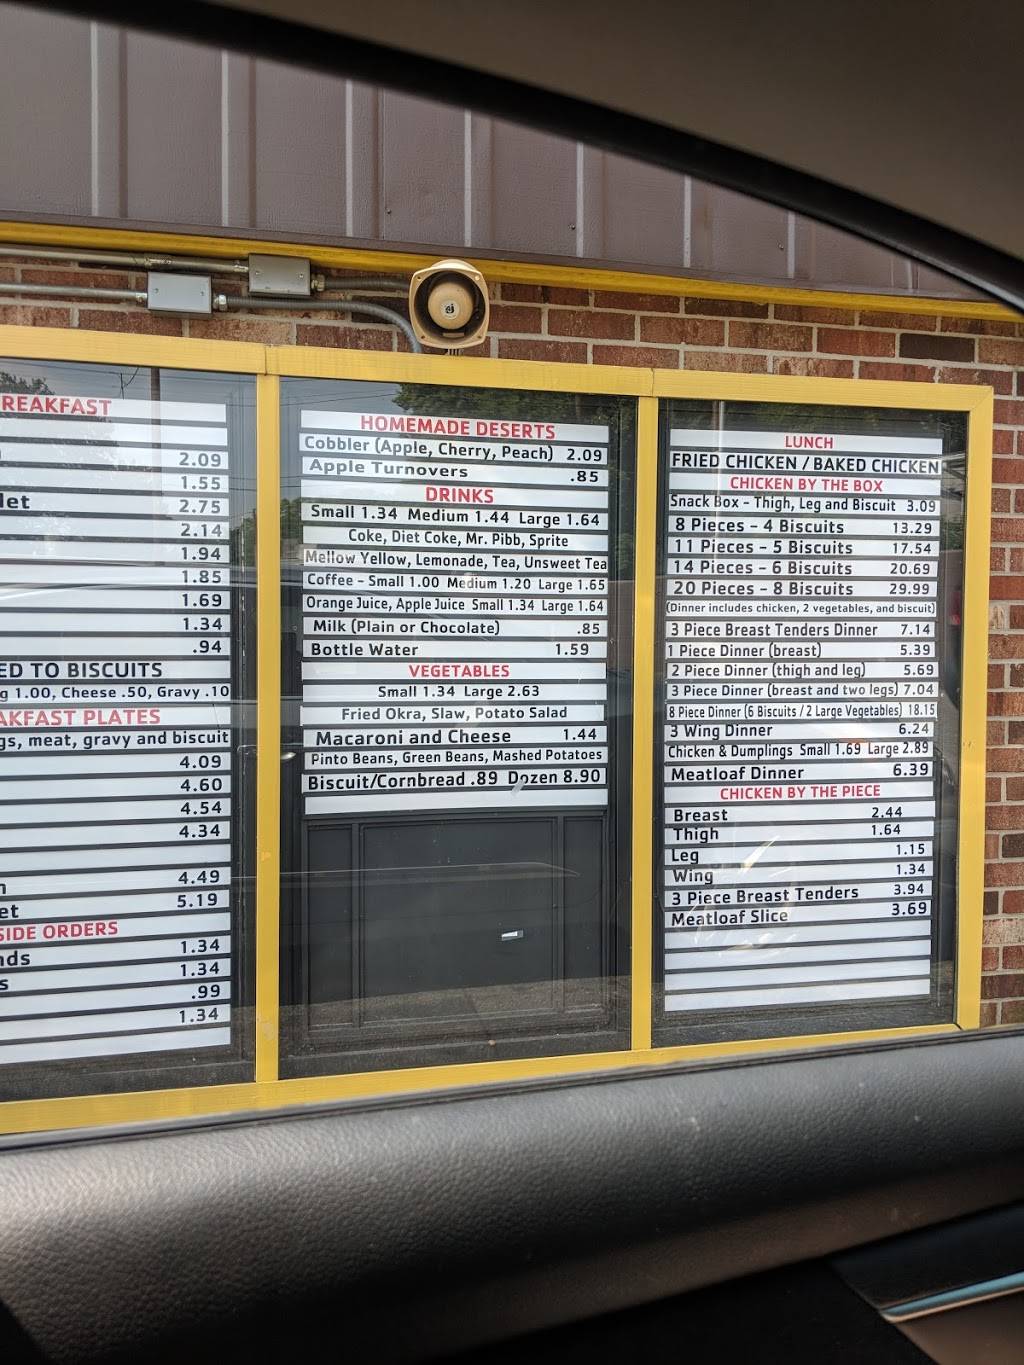 REAKFAST
2.09
1.55
let 2.75
2.14
1.94
1.85
1.69
1.34
.94
ED TO BISCUITS
g 1.00, Cheese .50, Gravy .10
AKFAST PLATES
gs, meat, gravy and biscuit
4.09
4.60
4.54
4.34
4.49
et 5.19
SIDE ORDERS
nds 1.34
s 1.34
.99
1.34
HOMEMADE DESERTS
Cobbler (Apple, Cherry, Peach) 2.09
Apple Turnovers .85
DRINKS
Small 1.34 Medium 1.44 Large 1.64
Coke, Diet Coke, Mr. Pibb, Sprite
Mellow Yellow, Lemonade, Tea, Unsweet Tea
Coffee - Small 1.00 Medium 1.20 Large 1.65
Orange Juice, Apple Juice Small 1.34 Large 1.64
Milk (Plain or Chocolate) .85
Bottle Water 1.59
VEGETABLES
Small 1.34 Large 2.63
Fried Okra, Slaw, Potato Salad
Macaroni and Cheese 1.44
Pinto Beans, Green Beans, Mashed Potatoes
Biscuit/Cornbread .89 Dozen 8.90
LUNCH
FRIED CHICKEN / BAKED CHICKEN
CHICKEN BY THE BOX
Snack Box - Thigh, Leg and Biscuit 3.09
8 Pieces - 4 Biscuits 13.29
11 Pieces - 5 Biscuits 17.54
14 Pieces - 6 Biscuits 20.69
20 Pieces - 8 Biscuits 29.99
(Dinner includes chicken, 2 vegetables, and biscuit)
3 Piece Breast Tenders Dinner 7.14
1 Piece Dinner (breast) 5.39
2 Piece Dinner (thigh and leg) 5.69
3 Piece Dinner (breast and two legs) 7.04
8 Piece Dinner (6 Biscuits / 2 Large Vegetables) 18.15
3 Wing Dinner 6.24
Chicken & Dumplings Small 1.69 Large 2.89
Meatloaf Dinner 6.39
CHICKEN BY THE PIECE
Breast 2.44
Thigh 1.64
Leg 1.15
Wing 1.34
3 Piece Breast Tenders 3.94
Meatloaf Slice 3.69